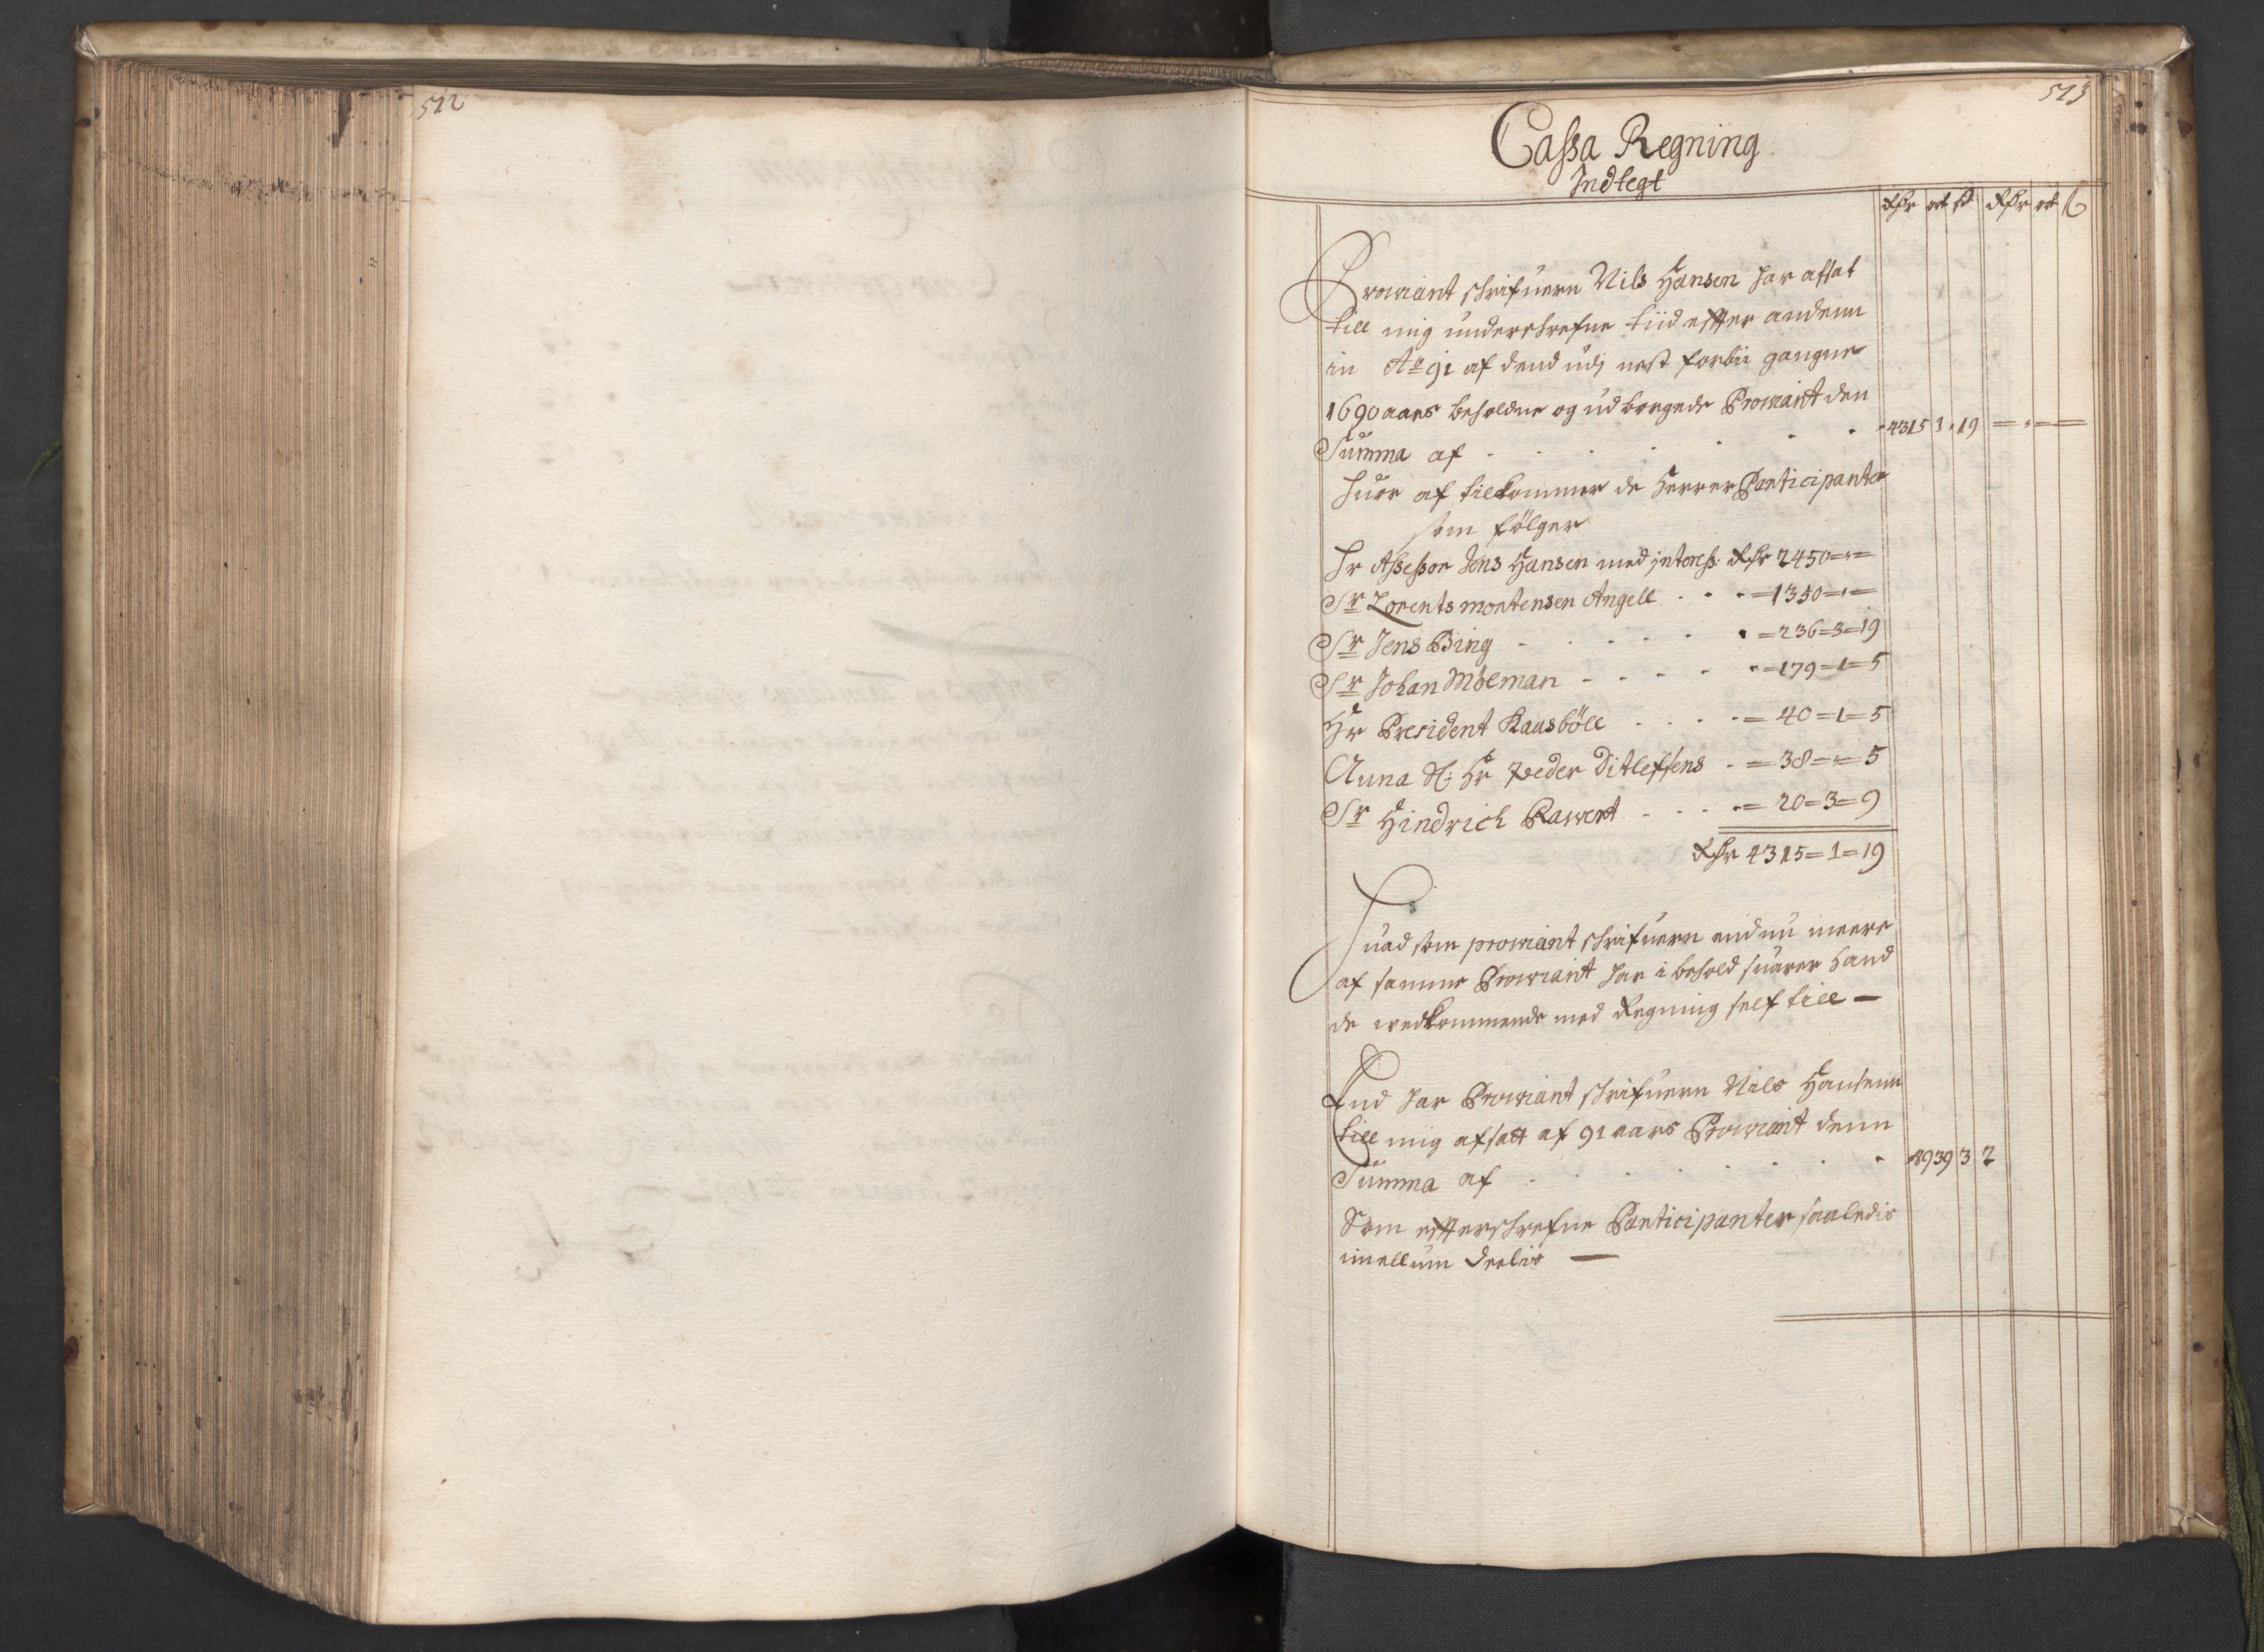 512
513
Cassa Regning
Indtegt
Rdr ort ß Rdr ort ß
Prowiant schrifuern Nils Hansen har afsat
till mig underschrefne tiid effter andenn
in Ao 91 af dend udj nest forbii gangne
1690 aars beholdne og udborgede Prowiant den
Summa af . . . . . . 4315 1 19
huor af tilkommer de Herrer Participanter
som fölger
Hr Assessor Jens Hansen med jnteress: Rdr 2450="=
Sr Lorents mortensen Angell . . . =1350="=
Sr Jens Bing . . . . . =236=3=19
Sr Johan Möeman - . . . =179=1=5
Hr President Kaasböll . . . . = 40=1=5
Anna Sl: Hr Peder Ditleffsens . = 38="=5
Sr Hindrich Rawert . . . = 20=3=9
Rdr 4315=1=19
Huad som prowiant schrifuern endnu meere
af samme Prowiant har i behold suarer hand
de wedkommende med Regning self till —
End har Prowiant schrifuern Nils Hansenn
till mig afsatt af 91 aars Prowiant denn
Summa af . . . . . . 8939 3 2
Som effterschrefne Participanter saaledis
imellum deelis —